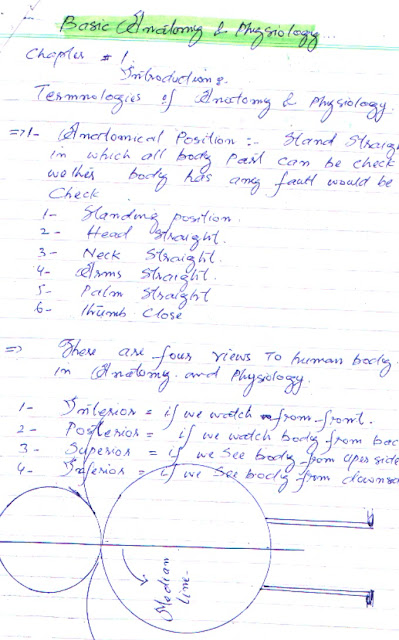 Basic Anatomy & Physiology
Chapter # 1
Introductions.
Termnologies of Anatomy & Physiology.
=> 1- Anatomical Position :- Stand Straight
in which all body Part can be check
wether body has any fault would be
Check
1- Standing position.
2- Head straight.
3- Neck Straight.
4- Arms Straight.
5- Palm straight
6- thumb close
=> There are four views To human body
in Anatomy and Physiology.
1- Interior = if we watch from front.
2- Posterior = if we watch body from bac
3- Superior = if we See body from uper side
4- Inferior = if we See body from
Median
line.